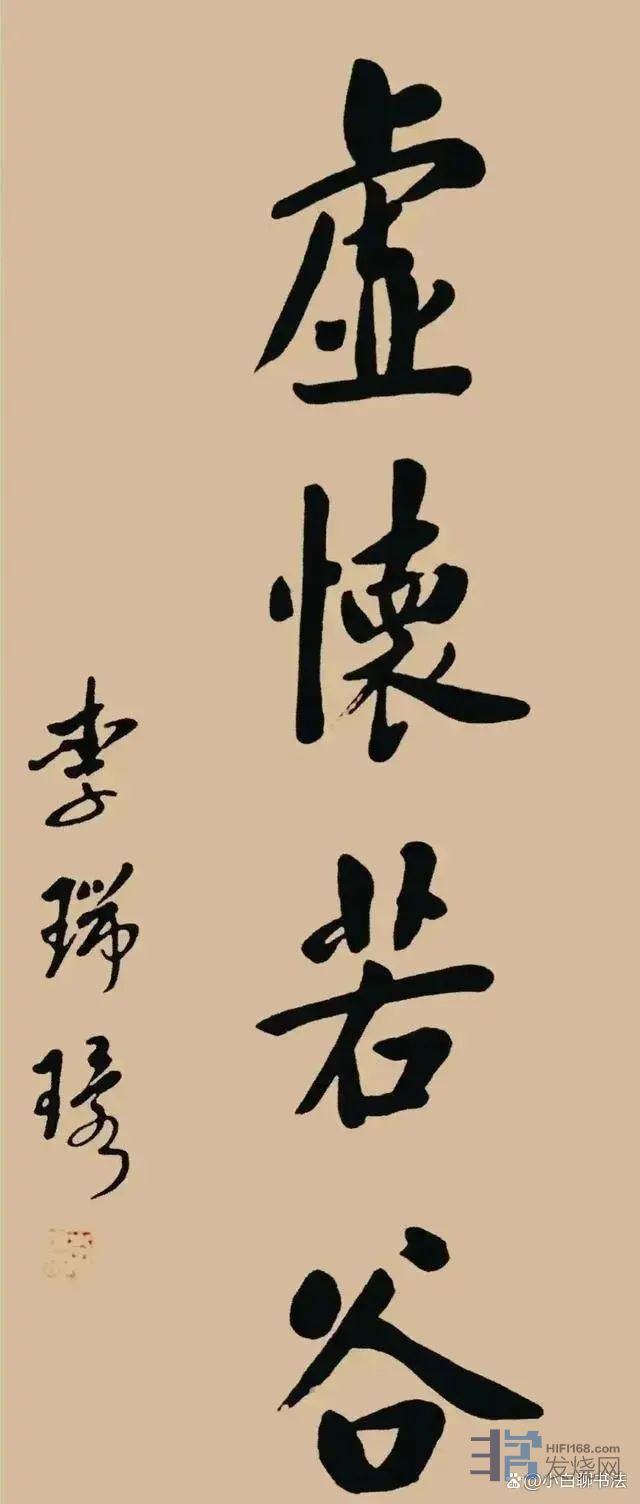 虛懷若谷
李瑞環
HIFI168.com
发烧网
@小白聊书法